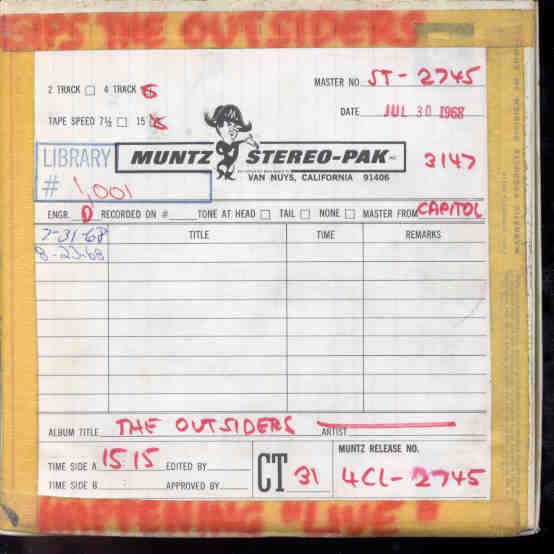 THE OUTSIDERS
2 TRACK 4 TRACK
MASTER NO. ST-2745
TAPE SPEED 7½ 15
DATE JUL 30 1968
LIBRARY
# 1,001
MUNTZ STEREO-PAK
3147
VAN NUYS, CALIFORNIA 91406
ENGR. D RECORDED ON # TONE AT HEAD TAIL NONE MASTER FROM CAPITOL
7-31-68
8-23-68
TITLE TIME REMARKS
ALBUM TITLE THE OUTSIDERS ARTIST
TIME SIDE A 15 15 EDITED BY
TIME SIDE B APPROVED BY
CT 31
MUNTZ RELEASE NO.
4CL-2745
HAPPENING "LIVE"